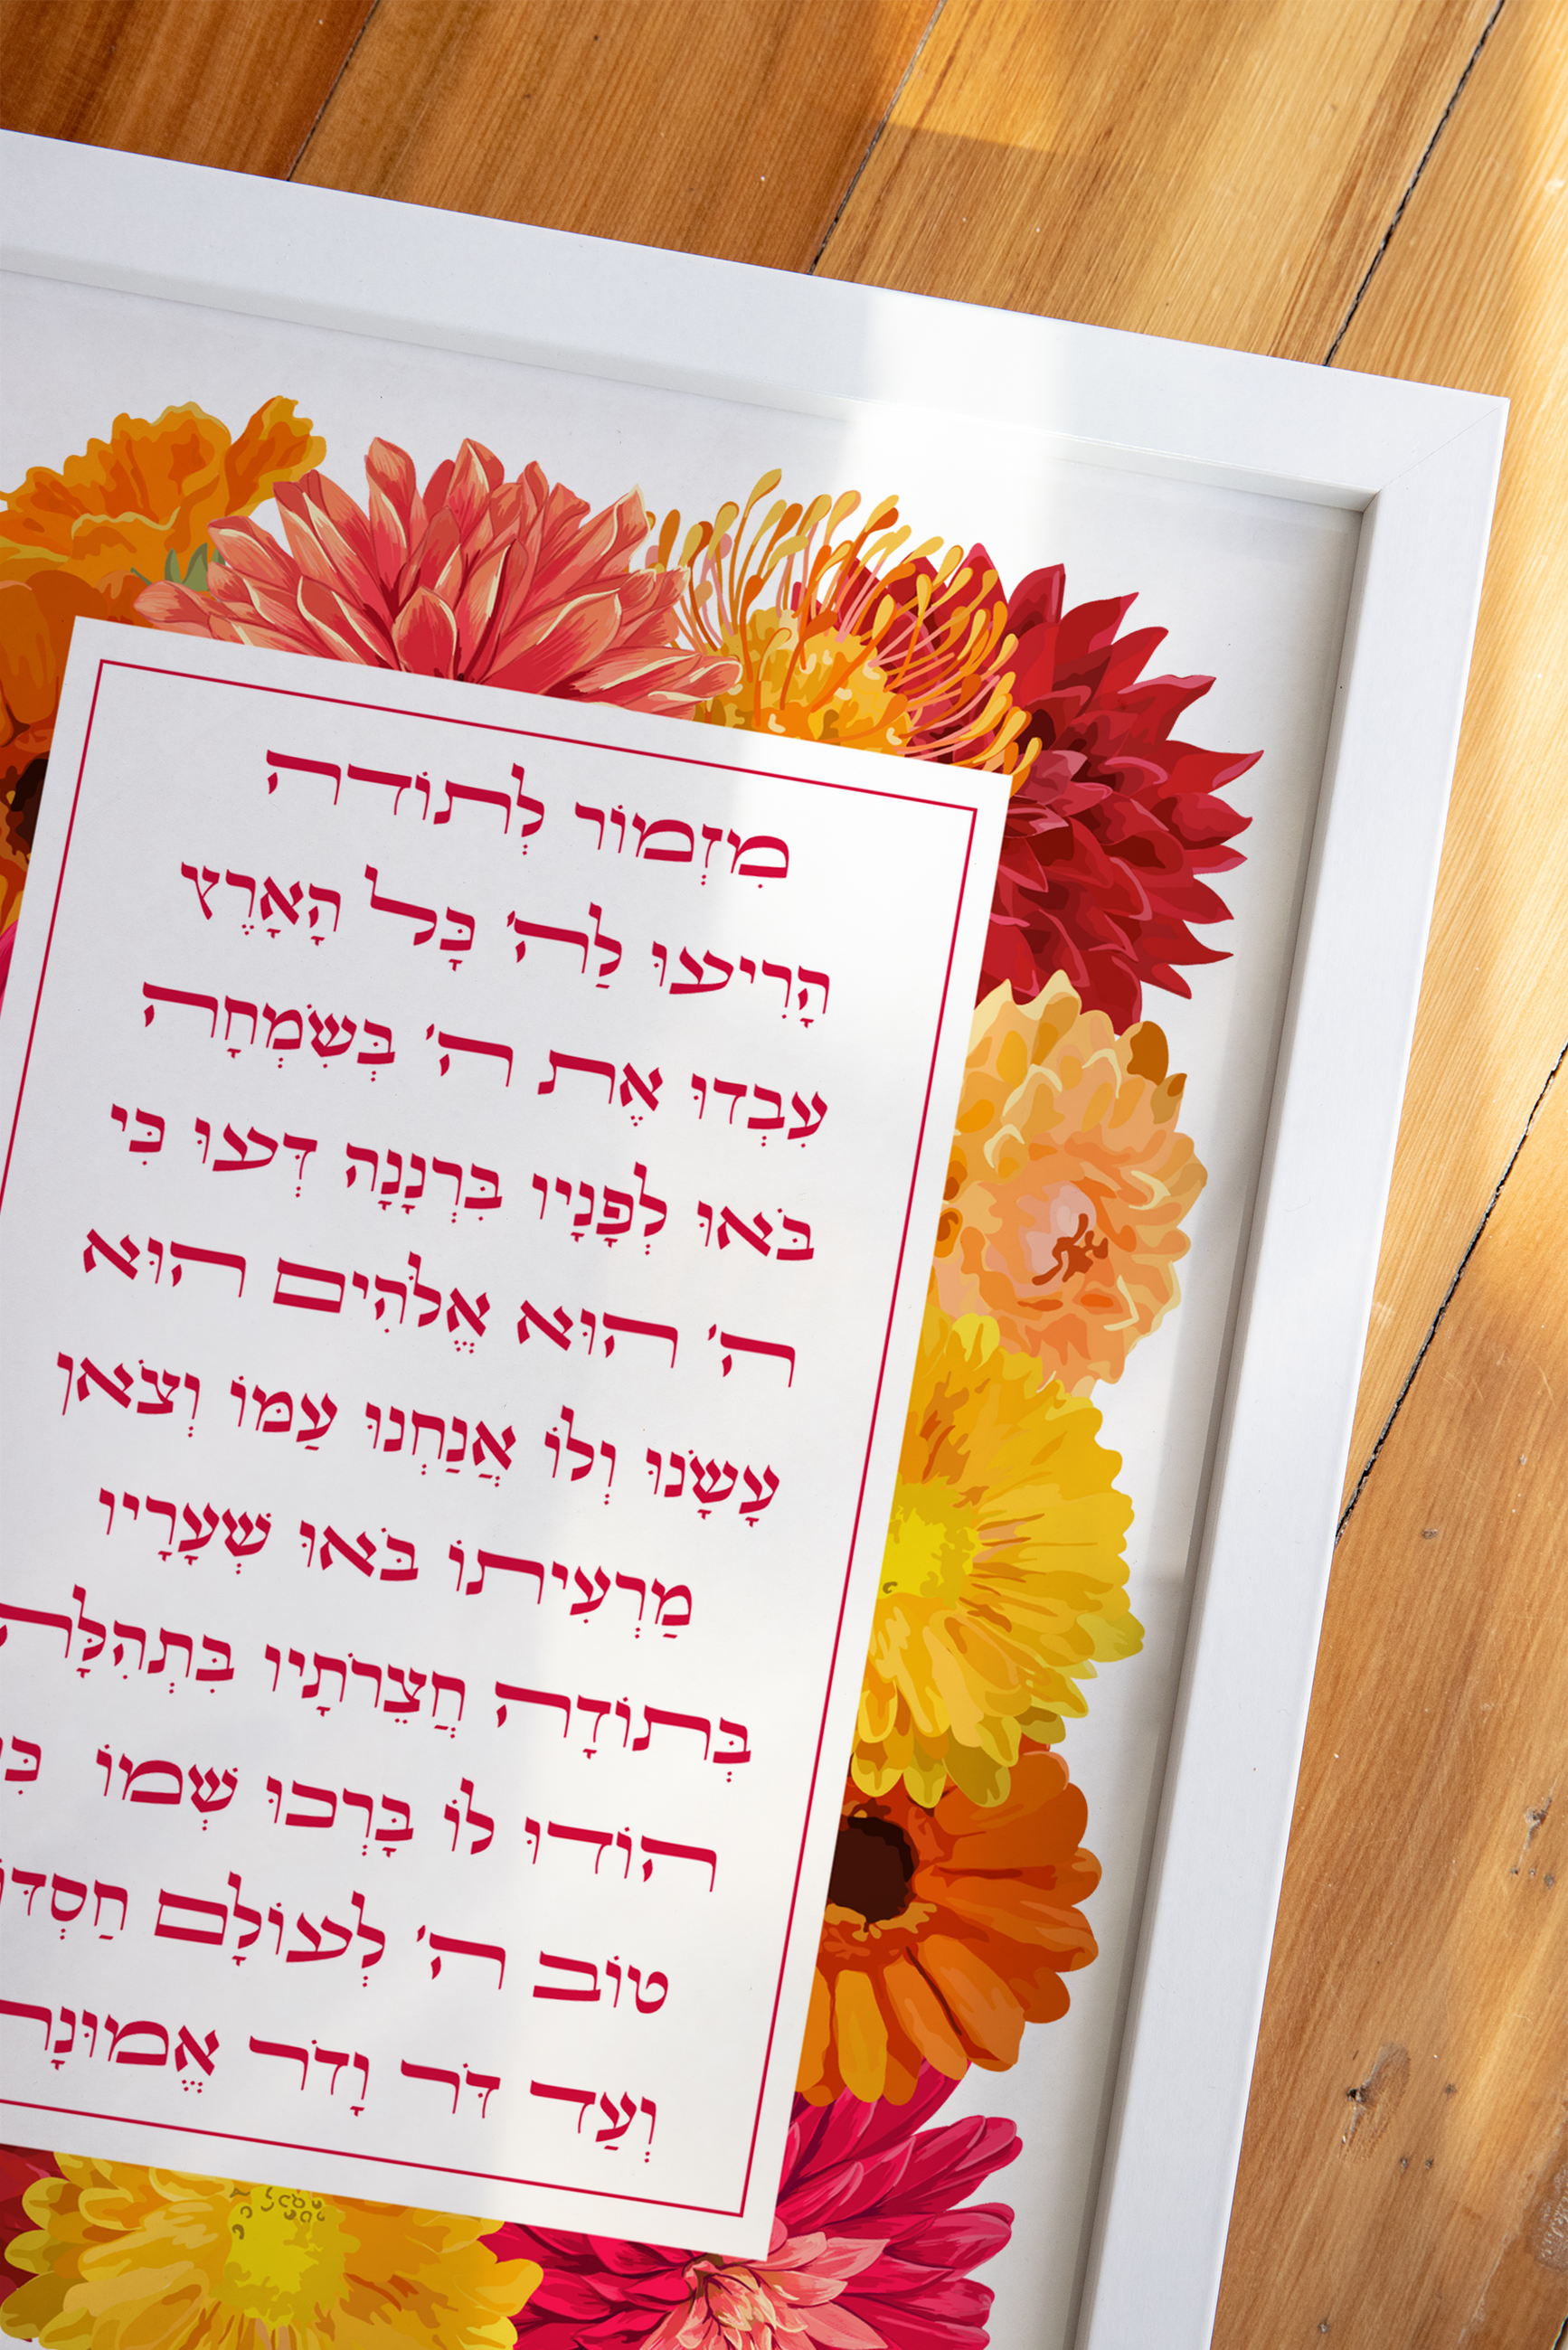 מִזְמוֹר לְתוֹדה
הָרִיעוּ לַה' כָּל הָאָרֶץ
עִבְדוּ אֶת ה' בְּשִׂמְחָה
בֹּאוּ לְפָנָיו בִּרְנָנָה דְּעוּ כִּי
ה' הוּא אֱלֹהִים הוּא
עָשָׂנוּ וְלוֹ אֲנַחְנוּ עַמּוֹ וְצֹאן
מַרְעִיתוֹ בֹּאוּ שְׁעָרָיו
בְּתוֹדָה חֲצֵרֹתָיו בִּתְהִלָּה
הוֹדוּ לוֹ בָּרְכוּ שְׁמוֹ
טוֹב ה' לְעוֹלָם חַסְדּוֹ
וְעַד דֹּר וָדֹר